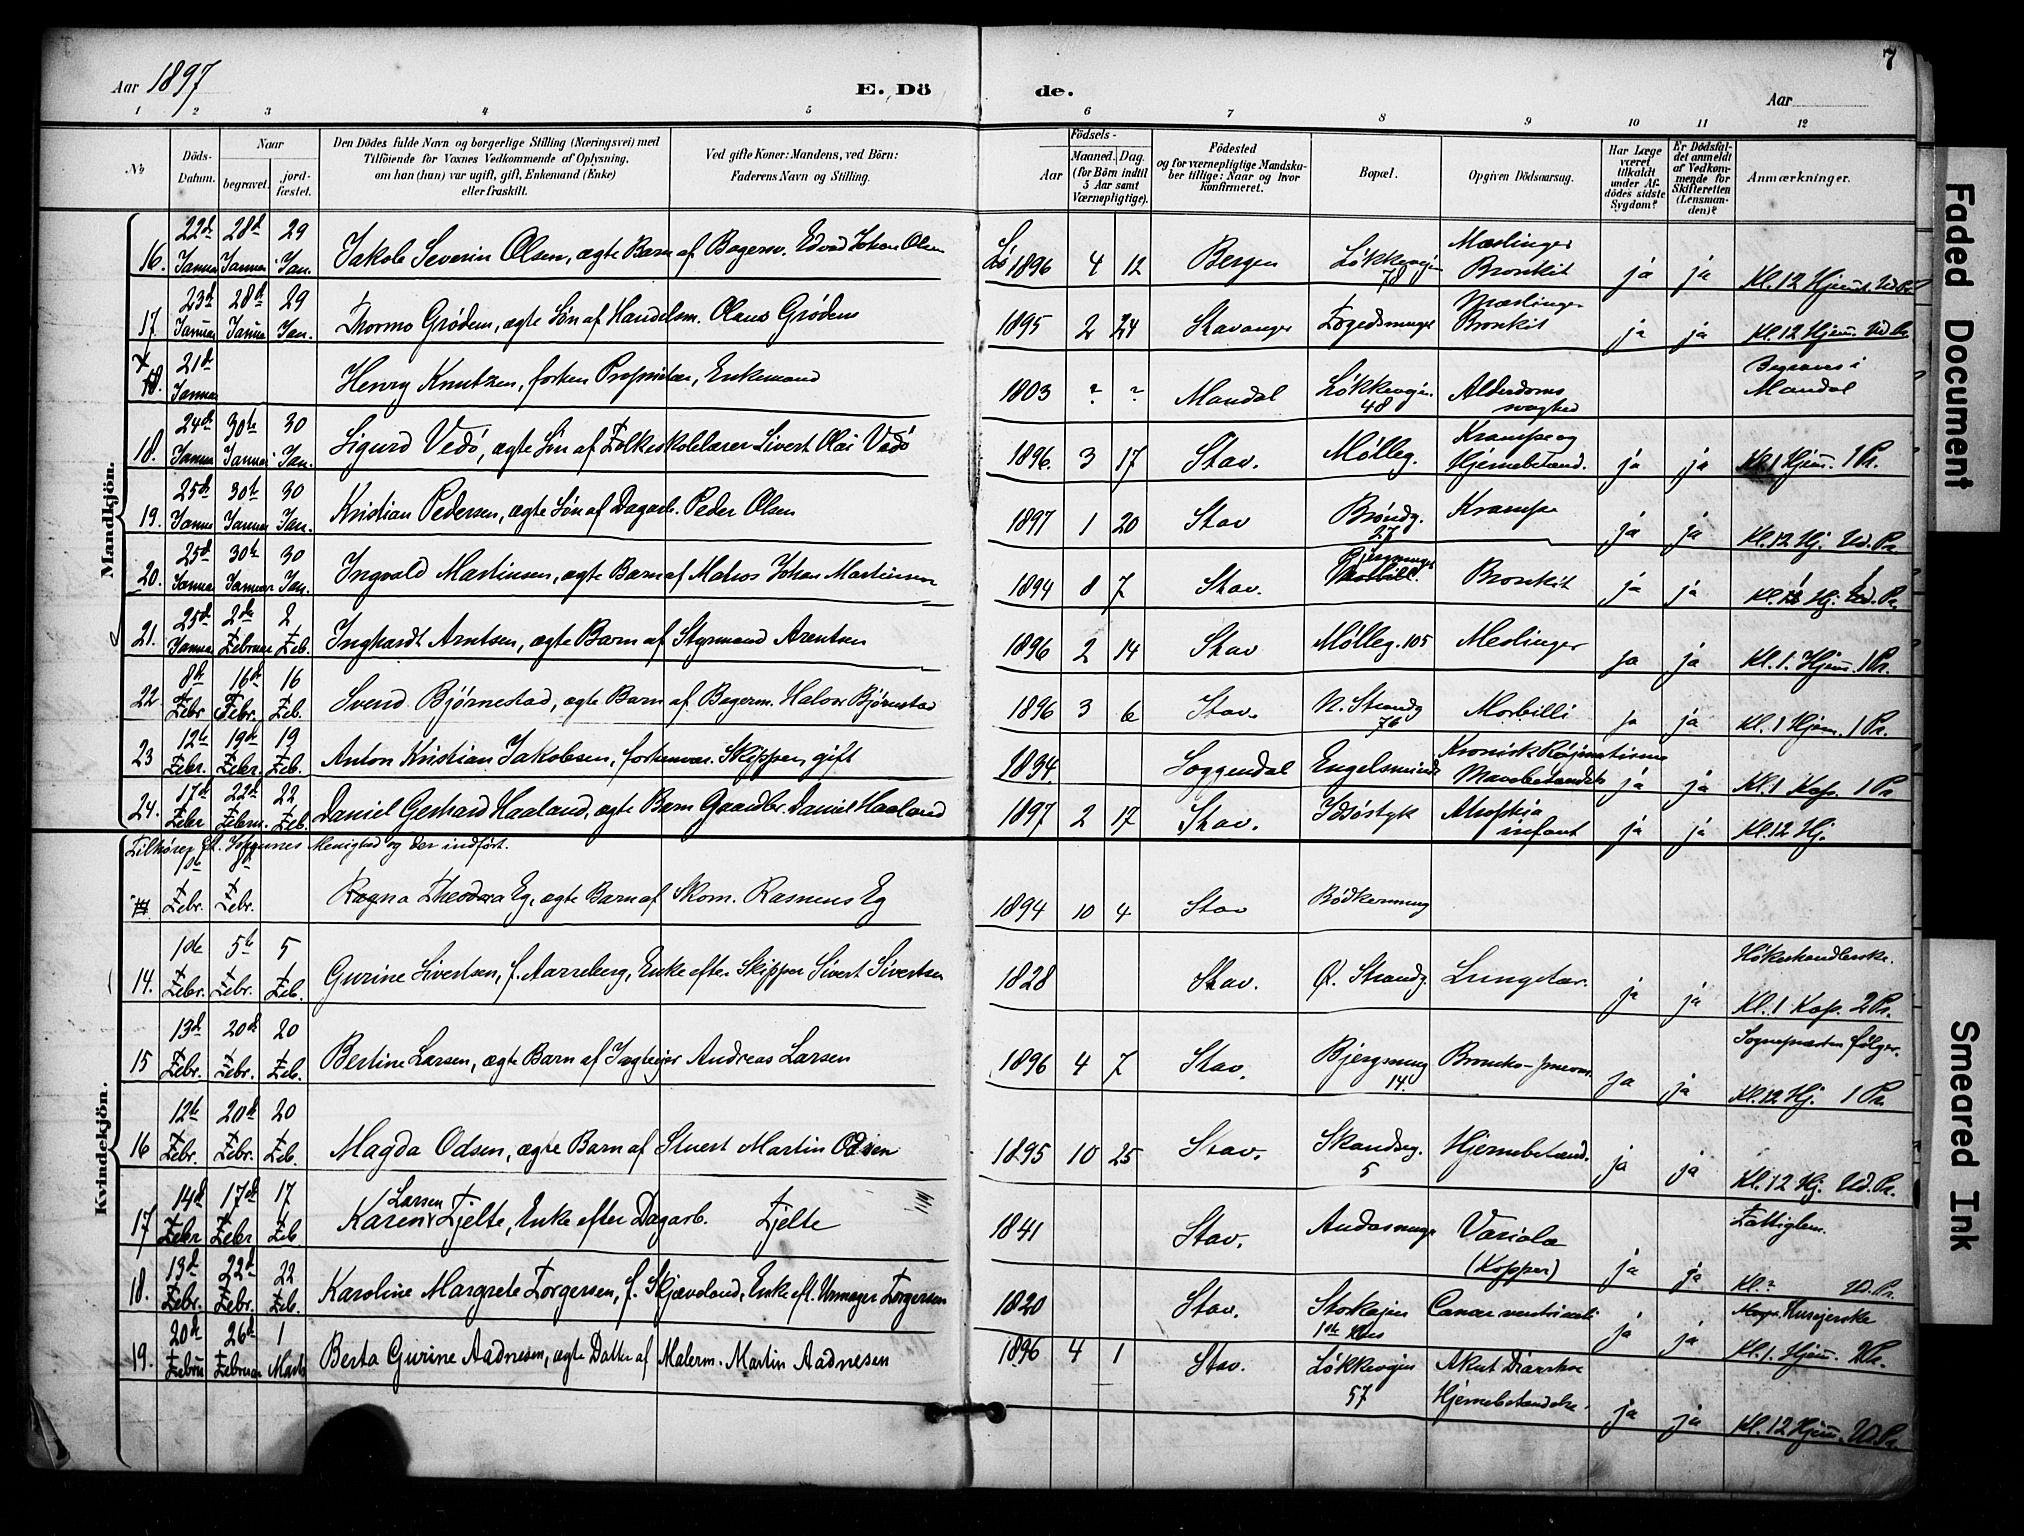 7
Aar 1897
E. Dö de.
Aar
1 2 3 4 5 6 7 8 9 10 11 12
No
Döds-Datum.
Naar
begravet. jordfæstet.
Den Dödes fulde Navn og borgerlige Stilling (Næringsvei) med
Tilföiende for Voxnes Vedkommende af Oplysning,
om han (hun) var ugift, gift, Enkemand (Enke)
eller fraskilt.
Ved gifte Koner: Mandens, ved Börn:
Faderens Navn og Stilling.
Födsels-
Aar Maaned. Dag.
(for Börn indtil
5 Aar samt
Værnepligtige).
Födested
og for værnepligtige Mandska-
ber tillige: Naar og hvor
Konfirmeret.
Bopæl.
Opgiven Dödsaarsag.
Har Læge
været
tilkaldt
under Af-
dödes sidste
Sygdom?
Er Dödsfal-
det anmeldt
af Vedkom-
mende for
Skifteretten
(Lensman-
den)?
Anmærkninger.
Mandkjön.
16. 22d Januar 28d Januar 29 Jan. Jakob Severin Olsen, ægte Barn af Bagersv. Edvard Johan Olsen 1896 4 12 Bergen Løkkeveien 78 Mæslinger Bronkit ja ja Kl. 12 Hjem. Ud. Pr.
17. 23d Januar 28d Januar 29 Jan. Thormo Grødem, ægte Søn af Handelsm. Olaus Grødem 1895 2 24 Stavanger Fogedsmuget Mæslinger Bronkit ja ja Kl. 12 Hjem. Ud. Pr.
18. 21d Januar Henry Knutzen, forhen Proprietær, Enkemand 1803 ? ? Mandal Løkkeveien 48 Alderdomssvaghed Begraves i Mandal
18. 24d Januar 30te Januar 30 Jan. Sigurd Vedø, ægte Søn af Folkeskolelærer Sivert Olai Vedø 1896 3 17 Stav. Mølleg. Krampe og Hjernebetænd. ja ja Kl. 1 Hjem. 1 Pr.
19. 25d Januar 30te Januar 30 Jan. Kristian Pedersen, ægte Søn af Dagarb. Peder Olsen 1897 1 20 Stav Brøndg. 27 Krampe ja ja Kl. 12 Hj. Ud. Pr.
20. 25d Januar 30te Januar 30 Jan. Ingvald Martinsen, ægte Barn af Matros Johan Martinsen 1894 8 7 Stav. Bjergsmuget Bronkit ja ja Kl. 1 Hj. 1 Pr.
21. 25d Januar 2de Februar 2 Feb. Inghardt Arntsen, ægte Barn af Styrmand Arentsen 1896 2 14 Stav Mølleg. 105 Meslinger ja ja Kl. 1. Hjem. 1 Pr.
22 8de Febr. 16de Febr. 16 Feb. Svend Bjørnestad, ægte Barn af Bagerm. Halvor Bjørnstad 1896 3 6 Stav. N. Strandg 76 Morbilli ja ja Kl. 1 Hjem. 1 Pr.
23 12te Febr. 19de Febr. 19 Feb. Anton Kristian Jakobsen, forhenvær. Skipper, gift 1834 Soggendal Engelsminde Kronisk Mavebetændelse ja ja Kl. 1 Kap. 1 Pr.
24. 17d Febr 22d Febru. 22 Feb. Daniel Gerhard Haaland, ægte Barn Gaardbr. Daniel Haaland 1897 2 17 Stav. Idsøstyk Atrofia infant ja ja Kl. 12 Hj.
Kvindekjön.
Tilhører St. Johannes Menighed og der indført.
1ste Febr. Febr. Ragna Theodora Eg, ægte Barn af Skom. Rasmus Eg 1894 10 4 Stav Bødkersmug
14. 1ste Febr. 5te Febr. 5 Feb. Gurine Sivertsen, f. Aarreberg, Enke efter Skipper Sivert Sivertsen 1828 Stav. Ø. Strandg. Lungetær. ja ja Høkerhandlerske. Kl. 1 Kap. 2 Pr.
15 13d Febr. 20d Febr. 20 Feb. Bertine Larsen, ægte Barn af Jagteier Andreas Larsen 1896 4 7 Stav. Bjergsmug 14. Broncho-pneum. ja ja Sognepræsten følger. Kl. 12 Hj. 1 Pr.
16 12te Febr. 20d Febr. 20 Feb. Magda Odsen, ægte Barn af Stuert Martin Odsen 1895 10 25 Stav. Skandseg. 5 Hjernebetænd. ja ja Kl. 12 Hj. Ud. Pr.
17 14d Febr 17d Febr 17 Feb Karen Larsen Fjelte, Enke efter Dagarb. Fjelte 1841 Stav. Andasmuge Variola (Kopper) ja ja Fattiglem. Kl. ? Ud. Pr.
18. 13d Febr. 22d Febr. 22 Feb. Karoline Margrete Torgersen, f. Skjæveland, Enke eft. Urmager Torgersen 1820 Stav. Storhagen 1ste Hus Cancer ventriculi ja ja Huseierske Kl. 1. Hjem. 2 Pr.
19. 20d Febru 26d Februar 1 Marts Berta Gurine Aadnesen, ægte Datter af Malerm. Martin Aadnesen 1896 4 1 Stav. Løkkeveien 57 Akut Diarrhoe Hjernebetændelse. ja ja Kl. 12 Hjem. Ud. Pr.
Faded Document
Smeared Ink